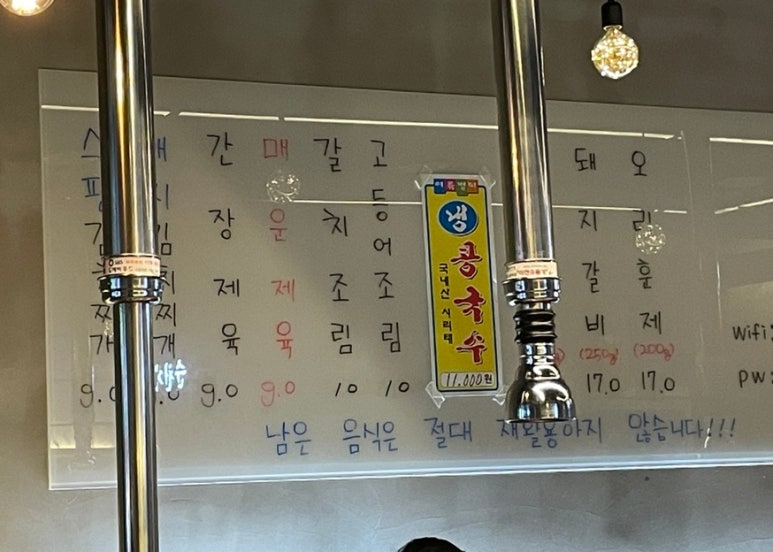 간장제육 9.0
매운제육 9.0
갈치조림 10
고등어조림 10
여름별미
냉콩국수
국내산 서리태
11,000원
돼지갈비 (250g) 17.0
오리훈제 (200g) 17.0
남은 음식은 절대 재활용하지 않습니다!!!
Wifi:
PW: